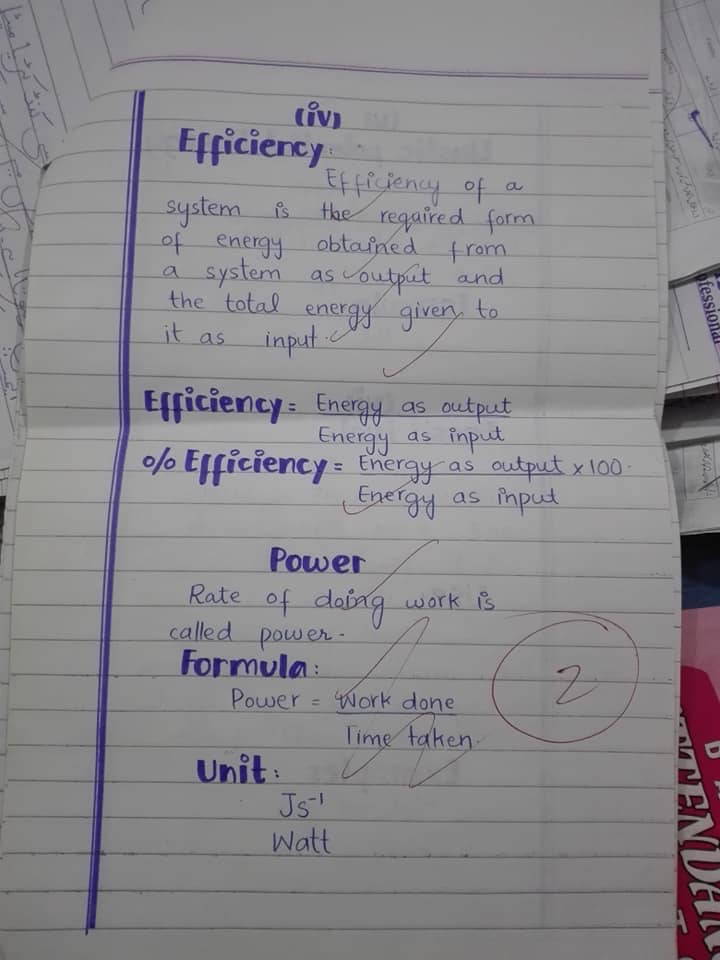 (iv)
Efficiency:
Efficiency of a
system is the required form
of energy obtained from
a system as output and
the total energy given to
it as input.
Efficiency = Energy as output
Energy as input
% Efficiency = Energy as output x 100.
Energy as input
Power
Rate of doing work is
called power.
Formula:
Power = Work done
Time taken.
2
Unit:
Js⁻¹
Watt
ofessional